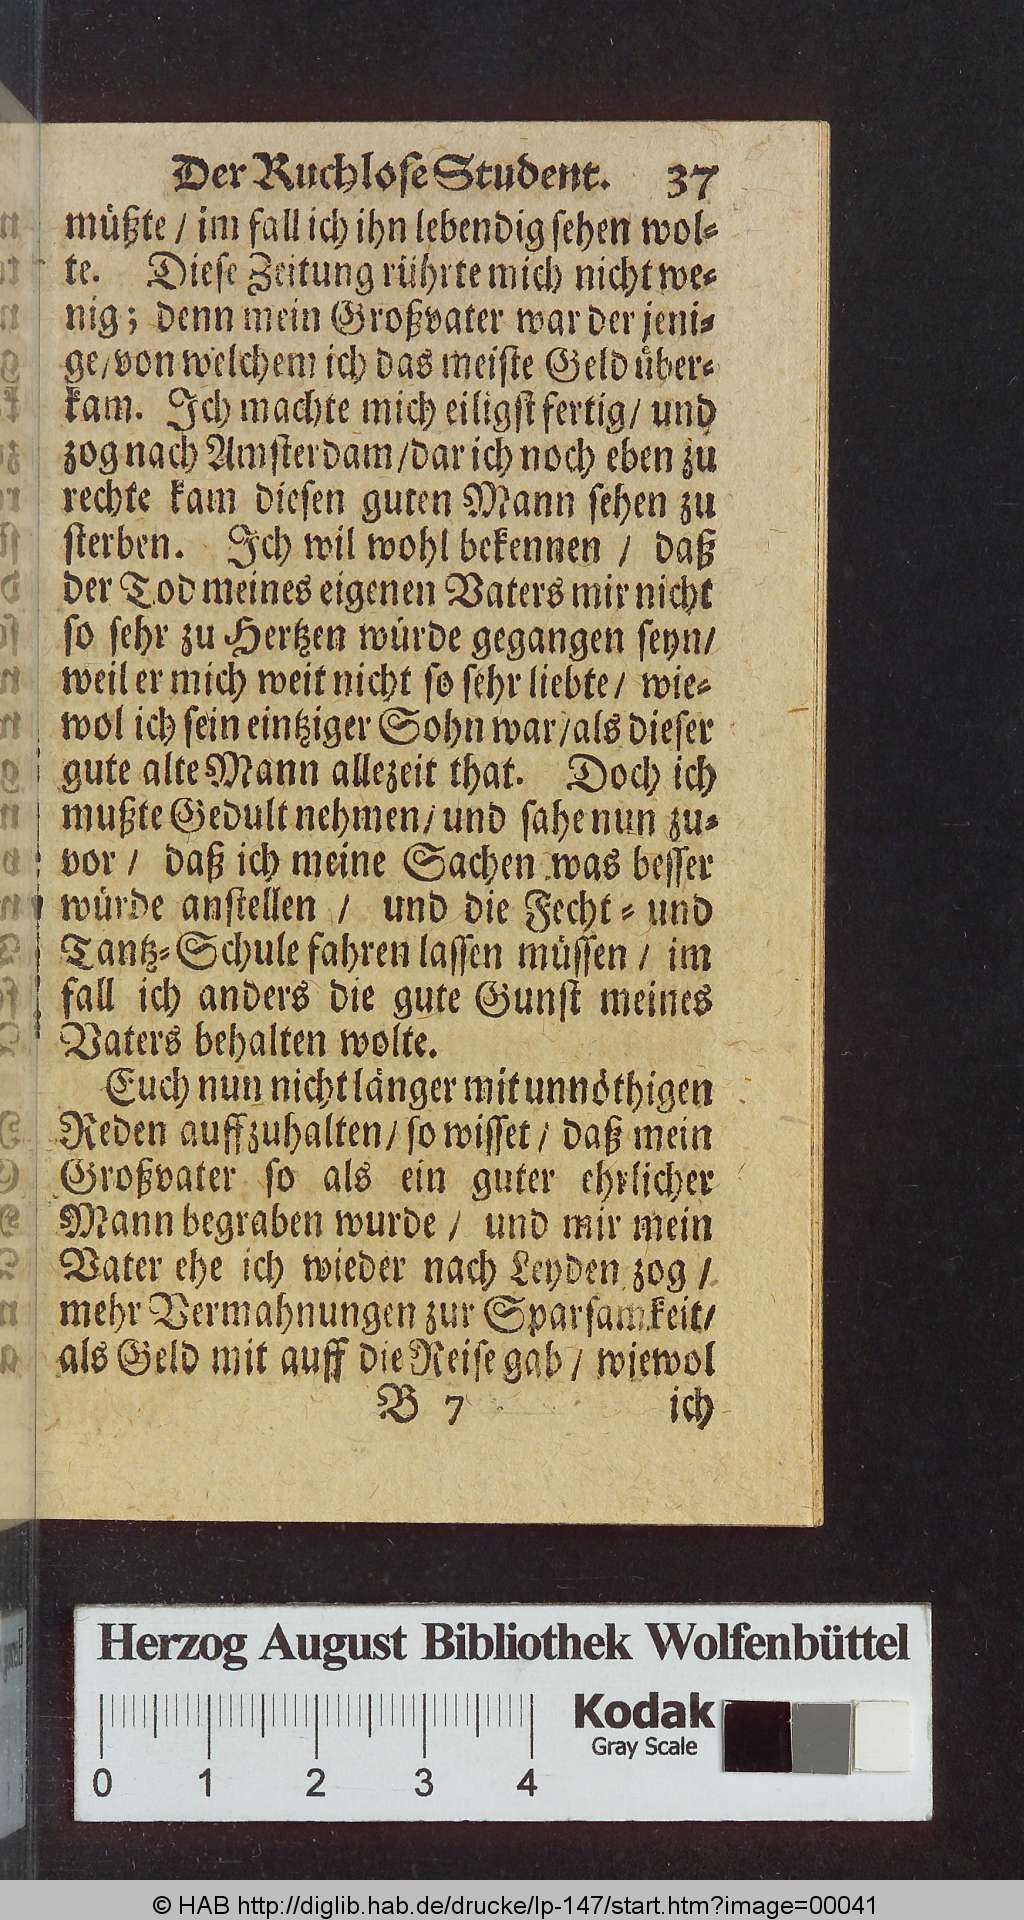 Der Ruchlose Student. 37
müßte / im fall ich ihn lebendig sehen wol-
te. Diese Zeitung rührte mich nicht we-
nig; denn mein Großvater war der jeni-
ge/von welchem ich das meiste Geld über-
kam. Ich machte mich eiligst fertig/ und
zog nach Amsterdam/dar ich noch eben zu
rechte kam diesen guten Mann sehen zu
sterben. Ich wil wohl bekennen / daß
der Tod meines eigenen Vaters mir nicht
so sehr zu Hertzen würde gegangen seyn/
weil er mich weit nicht so sehr liebte/ wie-
wol ich sein eintziger Sohn war/als dieser
gute alte Mann allezeit that. Doch ich
mußte Gedult nehmen/ und sahe nun zu-
vor / daß ich meine Sachen was besser
würde anstellen / und die Fecht- und
Tantz-Schule fahren lassen müssen / im
fall ich anders die gute Gunst meines
Vaters behalten wolte.
Euch nun nicht länger mit unnöthigen
Reden auffzuhalten/ so wisset / daß mein
Großvater so als ein guter ehrlicher
Mann begraben wurde / und mir mein
Vater ehe ich wieder nach Leyden zog /
mehr Vermahnungen zur Sparsamkeit/
als Geld mit auff die Reise gab / wiewol
B 7 ich
Herzog August Bibliothek Wolfenbüttel
Kodak
Gray Scale
0 1 2 3 4
© HAB http://diglib.hab.de/drucke/lp-147/start.htm?image=00041